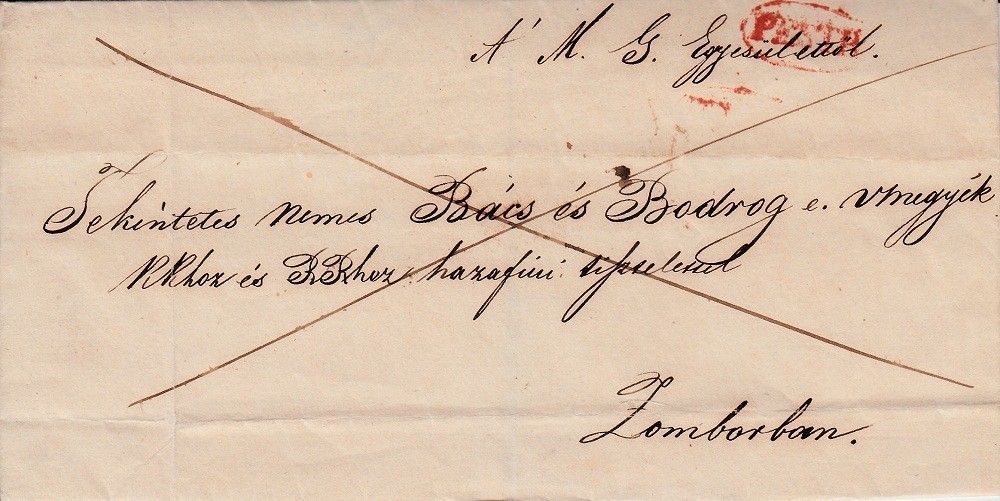 PESTH
A' M. G. Egyesülettől.
Tekintetes Nemes Bács és Bodrog e. vmegyék
KKhoz és RRhez hazafiúi tisztelettel
Zomborban.